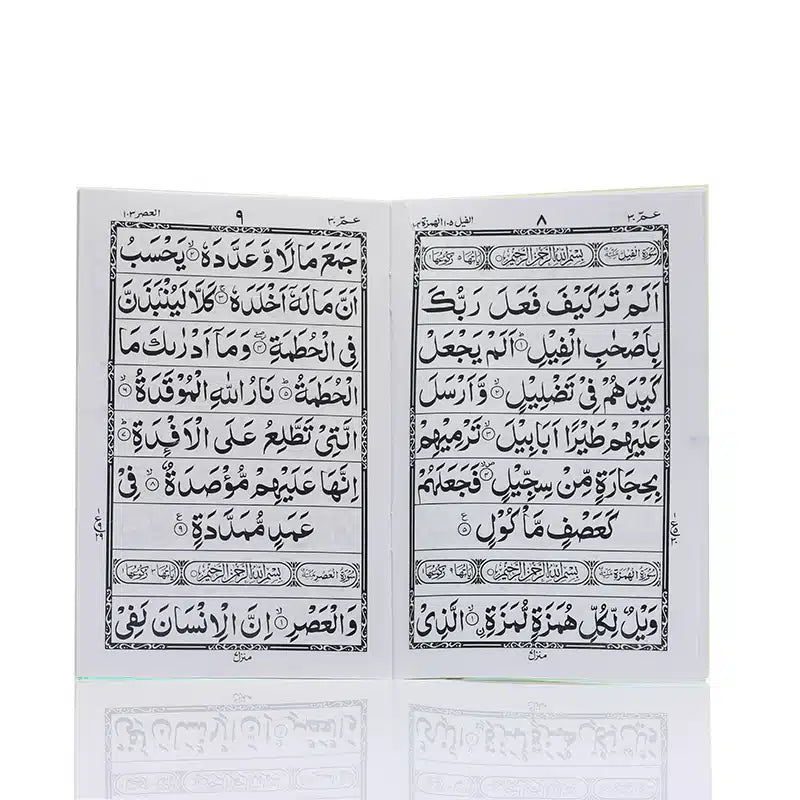 عمّ ٣٠
٨
الفيل ١٠٥ الهمزة ١٠٤
سورة الفيل
بسم الله الرحمن الرحيم
اٰیاتها ٥ رکوعها ١
اَلَمْ تَرَ كَيْفَ فَعَلَ رَبُّكَ
بِاَصْحٰبِ الْفِيْلِ ۱ اَلَمْ يَجْعَلْ
كَيْدَهُمْ فِيْ تَضْلِيْلٍ ۲ وَّاَرْسَلَ
عَلَيْهِمْ طَيْرًا اَبَابِيْلَ ۳ تَرْمِيْهِمْ
بِحِجَارَةٍ مِّنْ سِجِّيْلٍ ۴ فَجَعَلَهُمْ
كَعَصْفٍ مَّاْكُوْلٍ ۵
سورة الهمزة
بسم الله الرحمن الرحيم
اٰیاتها ٩ رکوعها ١
وَيْلٌ لِّكُلِّ هُمَزَةٍ لُّمَزَةٍ ۱ الَّذِيْ
منزل ٧
عمّ ٣٠
٩
العصر ١٠٣
جَمَعَ مَالًا وَّعَدَّدَهٗ ۲ يَحْسَبُ
اَنَّ مَالَهٗٓ اَخْلَدَهٗ ۳ كَلَّا لَيُنْۢبَذَنَّ
فِي الْحُطَمَةِ ۴ وَمَآ اَدْرٰىكَ مَا
الْحُطَمَةُ ۵ نَارُ اللّٰهِ الْمُوْقَدَةُ ۶
الَّتِيْ تَطَّلِعُ عَلَى الْاَفْـِٕدَةِ ۷
اِنَّهَا عَلَيْهِمْ مُّؤْصَدَةٌ ۸ فِيْ
عَمَدٍ مُّمَدَّدَةٍ ۹
سورة العصر
بسم الله الرحمن الرحيم
اٰیاتها ٣ رکوعها ١
وَالْعَصْرِ ۱ اِنَّ الْاِنْسَانَ لَفِيْ
منزل ٧